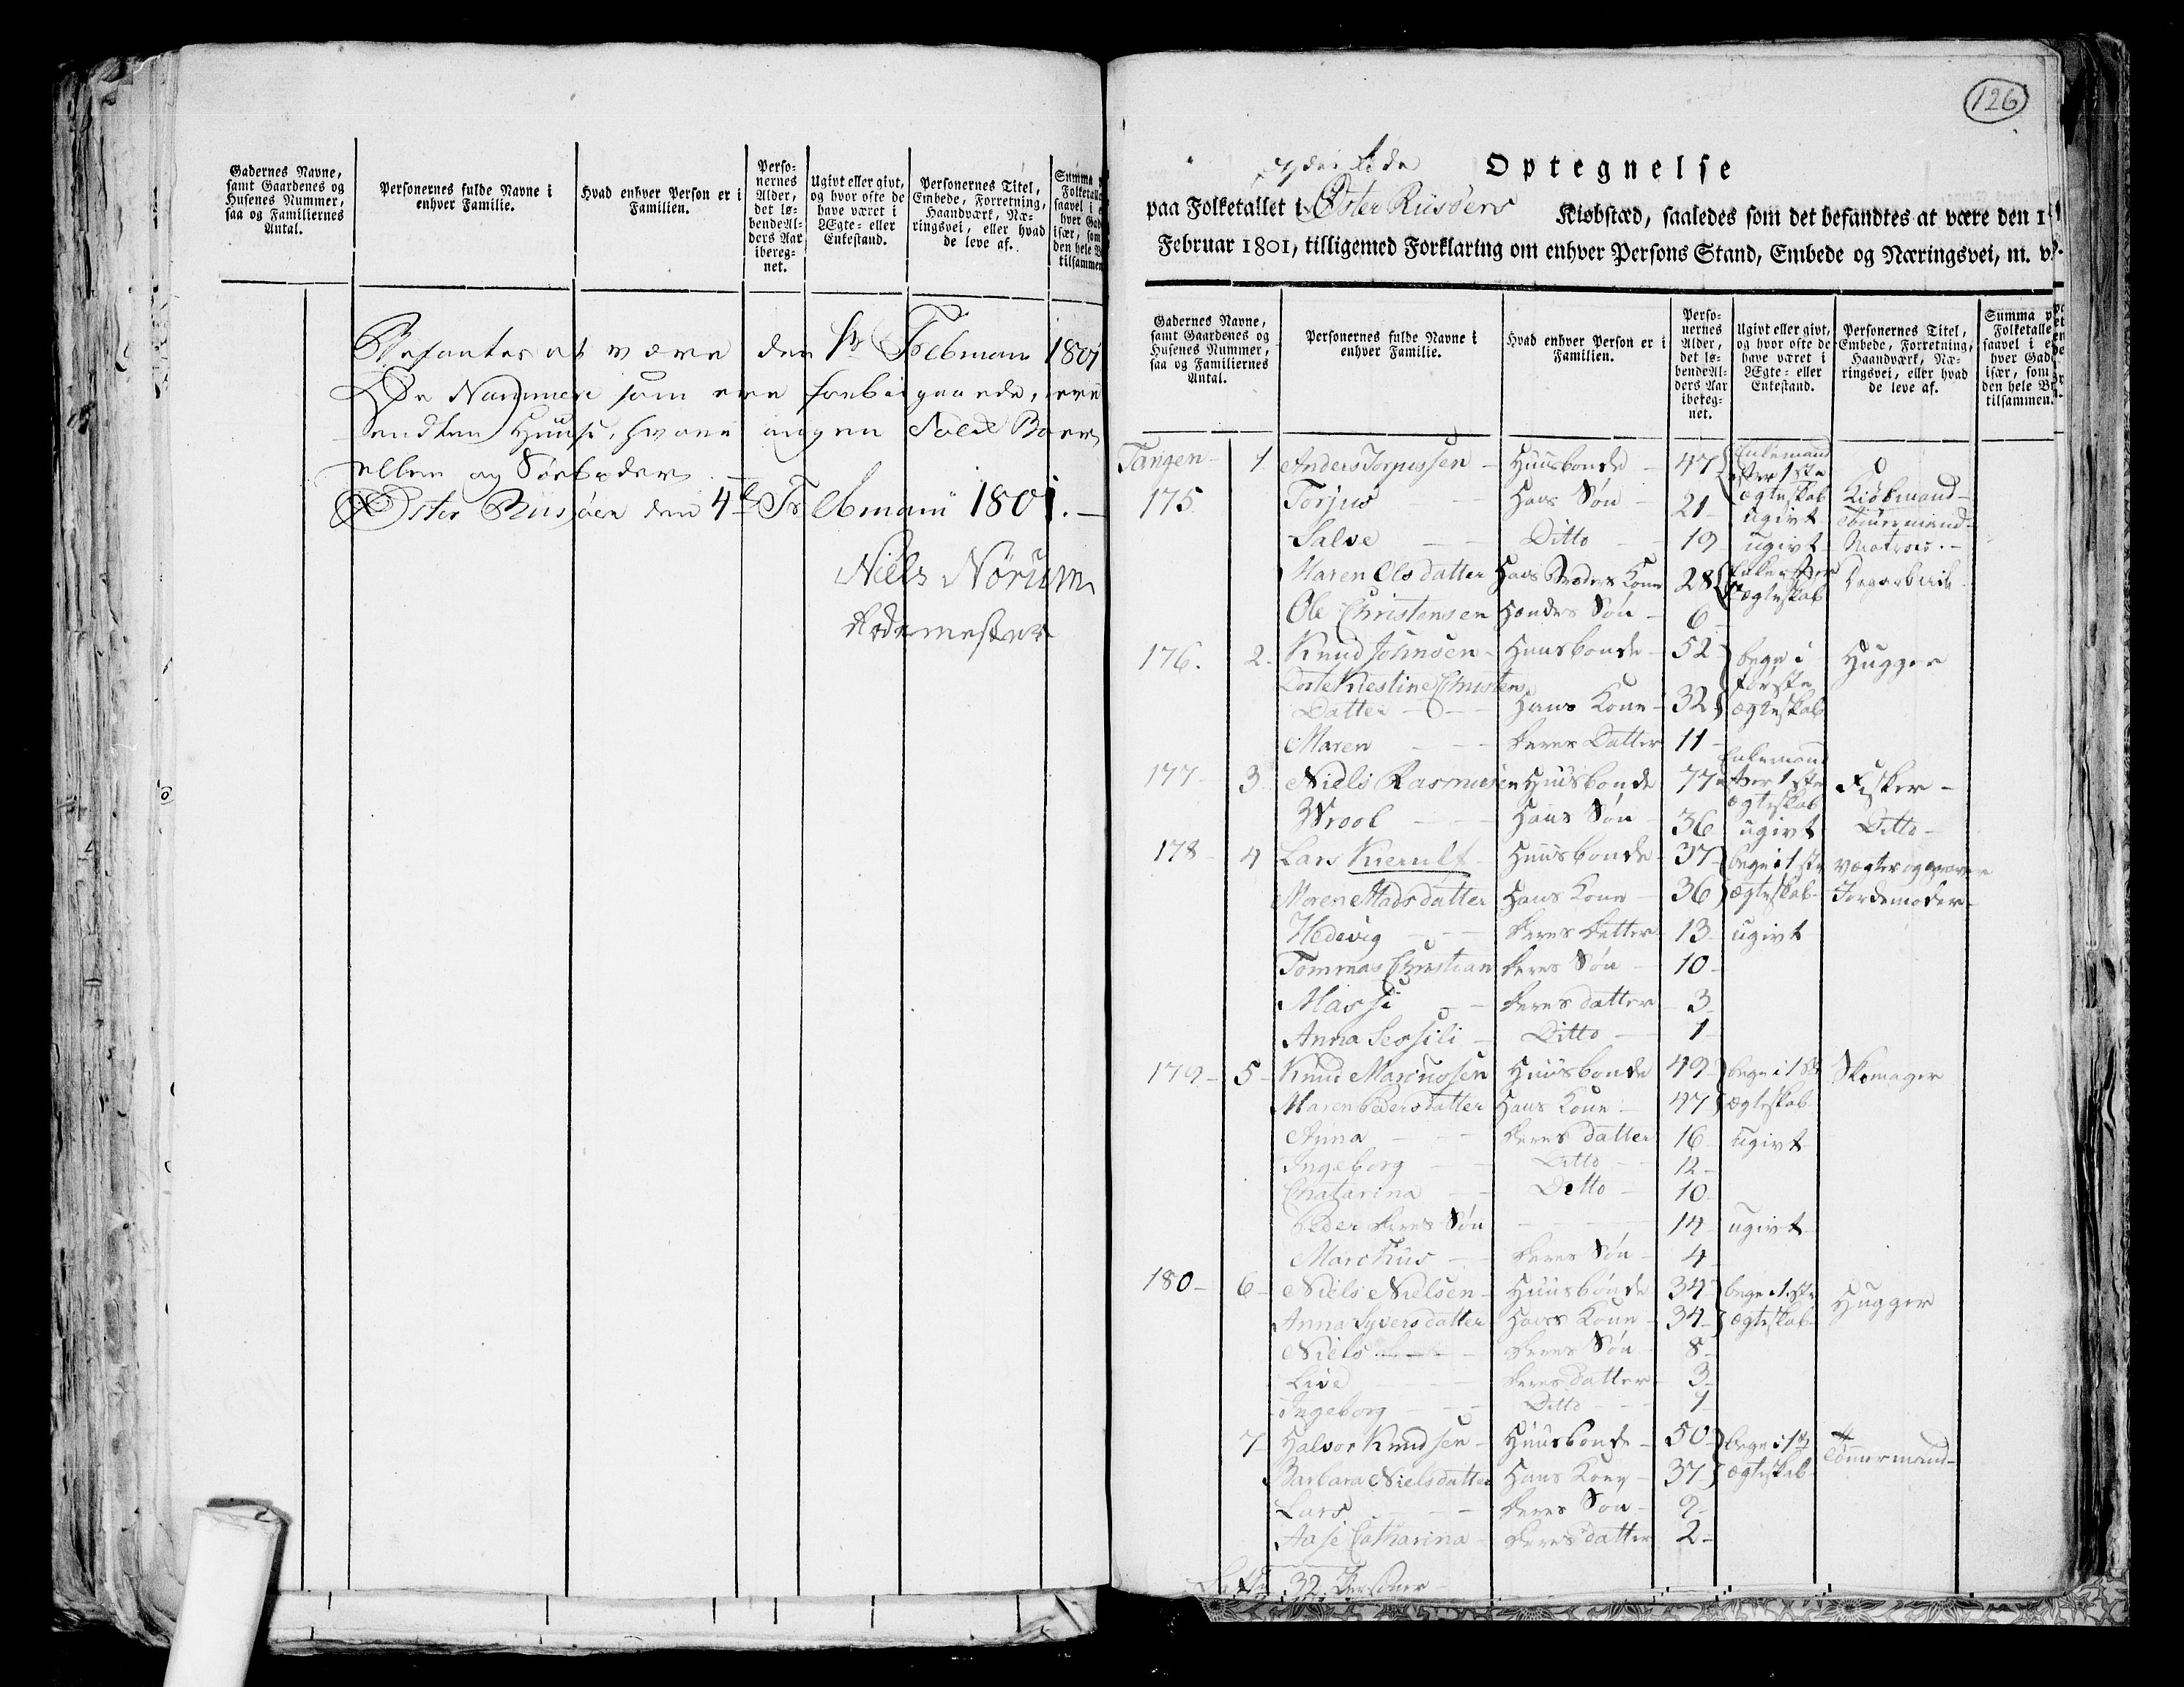 Gadernes Navne,
samt Gaardenes og
Husenes Nummer,
saa og Familiernes
Antal.
Personernes fulde Navne i
enhver Familie.
Hvad enhver Person er i
Familien.
Perso-
nernes
Alder,
det lø-
bende Al-
ders Aar
ibereg-
net.
Ugivt eller givt,
og hvor ofte de
have været i
Ægte- eller
Enkestand.
Personernes Titel,
Embede, Forretning,
Haandværk, Næ-
ringsvei, eller hvad
de leve af.
Summa
Folketalle
saavel i e
hver Gad
især, som
den hele B
tilsammen
at være den 1ste Februarii 1801
De Nummere som ere forbigaaede, ere
Huuse, hvore ingen Folk Boer,
eller og Søeboder
Øster Riisöer den 4de Februarii 1801.
Niels Nörum
Rodemester
126
Optegnelse
paa Folketallet i Øster Riisöers Kiøbstæd, saaledes som det befandtes at være den 1
Februar 1801, tilligemed Forklaring om enhver Persons Stand, Embede og Næringsvei, m. v.
Gadernes Navne,
samt Gaardenes og
Husenes Nummer,
saa og Familiernes
Antal.
Personernes fulde Navne i
enhver Familie.
Hvad enhver Person er i
Familien.
Perso-
nernes
Alder,
det lø-
bende Al-
ders Aar
ibereg-
net.
Ugivt eller givt,
og hvor ofte de
have været i
Ægte- eller
Enkestand.
Personernes Titel,
Embede, Forretning,
Haandværk, Næ-
ringsvei, eller hvad
de leve af.
Summa p
Folketalle
saavel i e
hver Gad
især, som
den hele B
tilsammen.
Tangen 1 Anders Torjussen Huusbonde 47 Enkemand efter 1ste ægteskab Kiöbmand
175 Torjus Hans Søn 21 ugivt Stuermand
Salve Ditto 19 ugivt Matros
Maren Olsdatter Hans Broders Kone 28 ægteskab Dagarbeide
Ole Christensen Hendes Søn 6
176. 2. Knud Johnsen Huusbonde 52 begge i Hugger
første
Dorte Kiestine Christens
Datter Hans Kone 32 ægteskab
Maren Deres Datter 11
177 3 Niels Rasmusen Huusbonde 77 Enkemand efter 1ste ægteskab Fisker
Wrool Hans Søn 36 ugivt Ditto
178 4 Lars Kierulf Huusbonde 37 begge i 1ste Vægter og graver
Maren Madsdatter Hans Kone 36 ægteskab Jordemoder
Hedevig Deres Datter 13 ugivt
Tommas Christian Deres Søn 10
Massi Deres datter 3
Anna Sessili Ditto 1
179 5 Knud Marcussen Huusbonde 49 begge i 1ste Skomager
Maren Pedersdatter Hans Kone 47 ægteskab
Anna Deres datter 16 ugivt
Ingeborg Ditto 12
Chatarina Ditto 10
Peder Deres Søn 14 ugivt
Marchus Deres Søn 4
180 6 Niels Nielsen Huusbonde 34 begge i 1ste Hugger
Anna Syversdatter Hans Kone 34 ægteskab
Niels Deres Søn 8
Live Deres datter 3
Ingeborg Ditto 1
7 Halvor Knudsen Huusbonde 50 begge i 1ste Tömmermand
Barbara Nielsdatter Hans Kone 37 ægteskab
Lars Deres Søn 9
Aase Catharina Deres datter 2
32 Personer